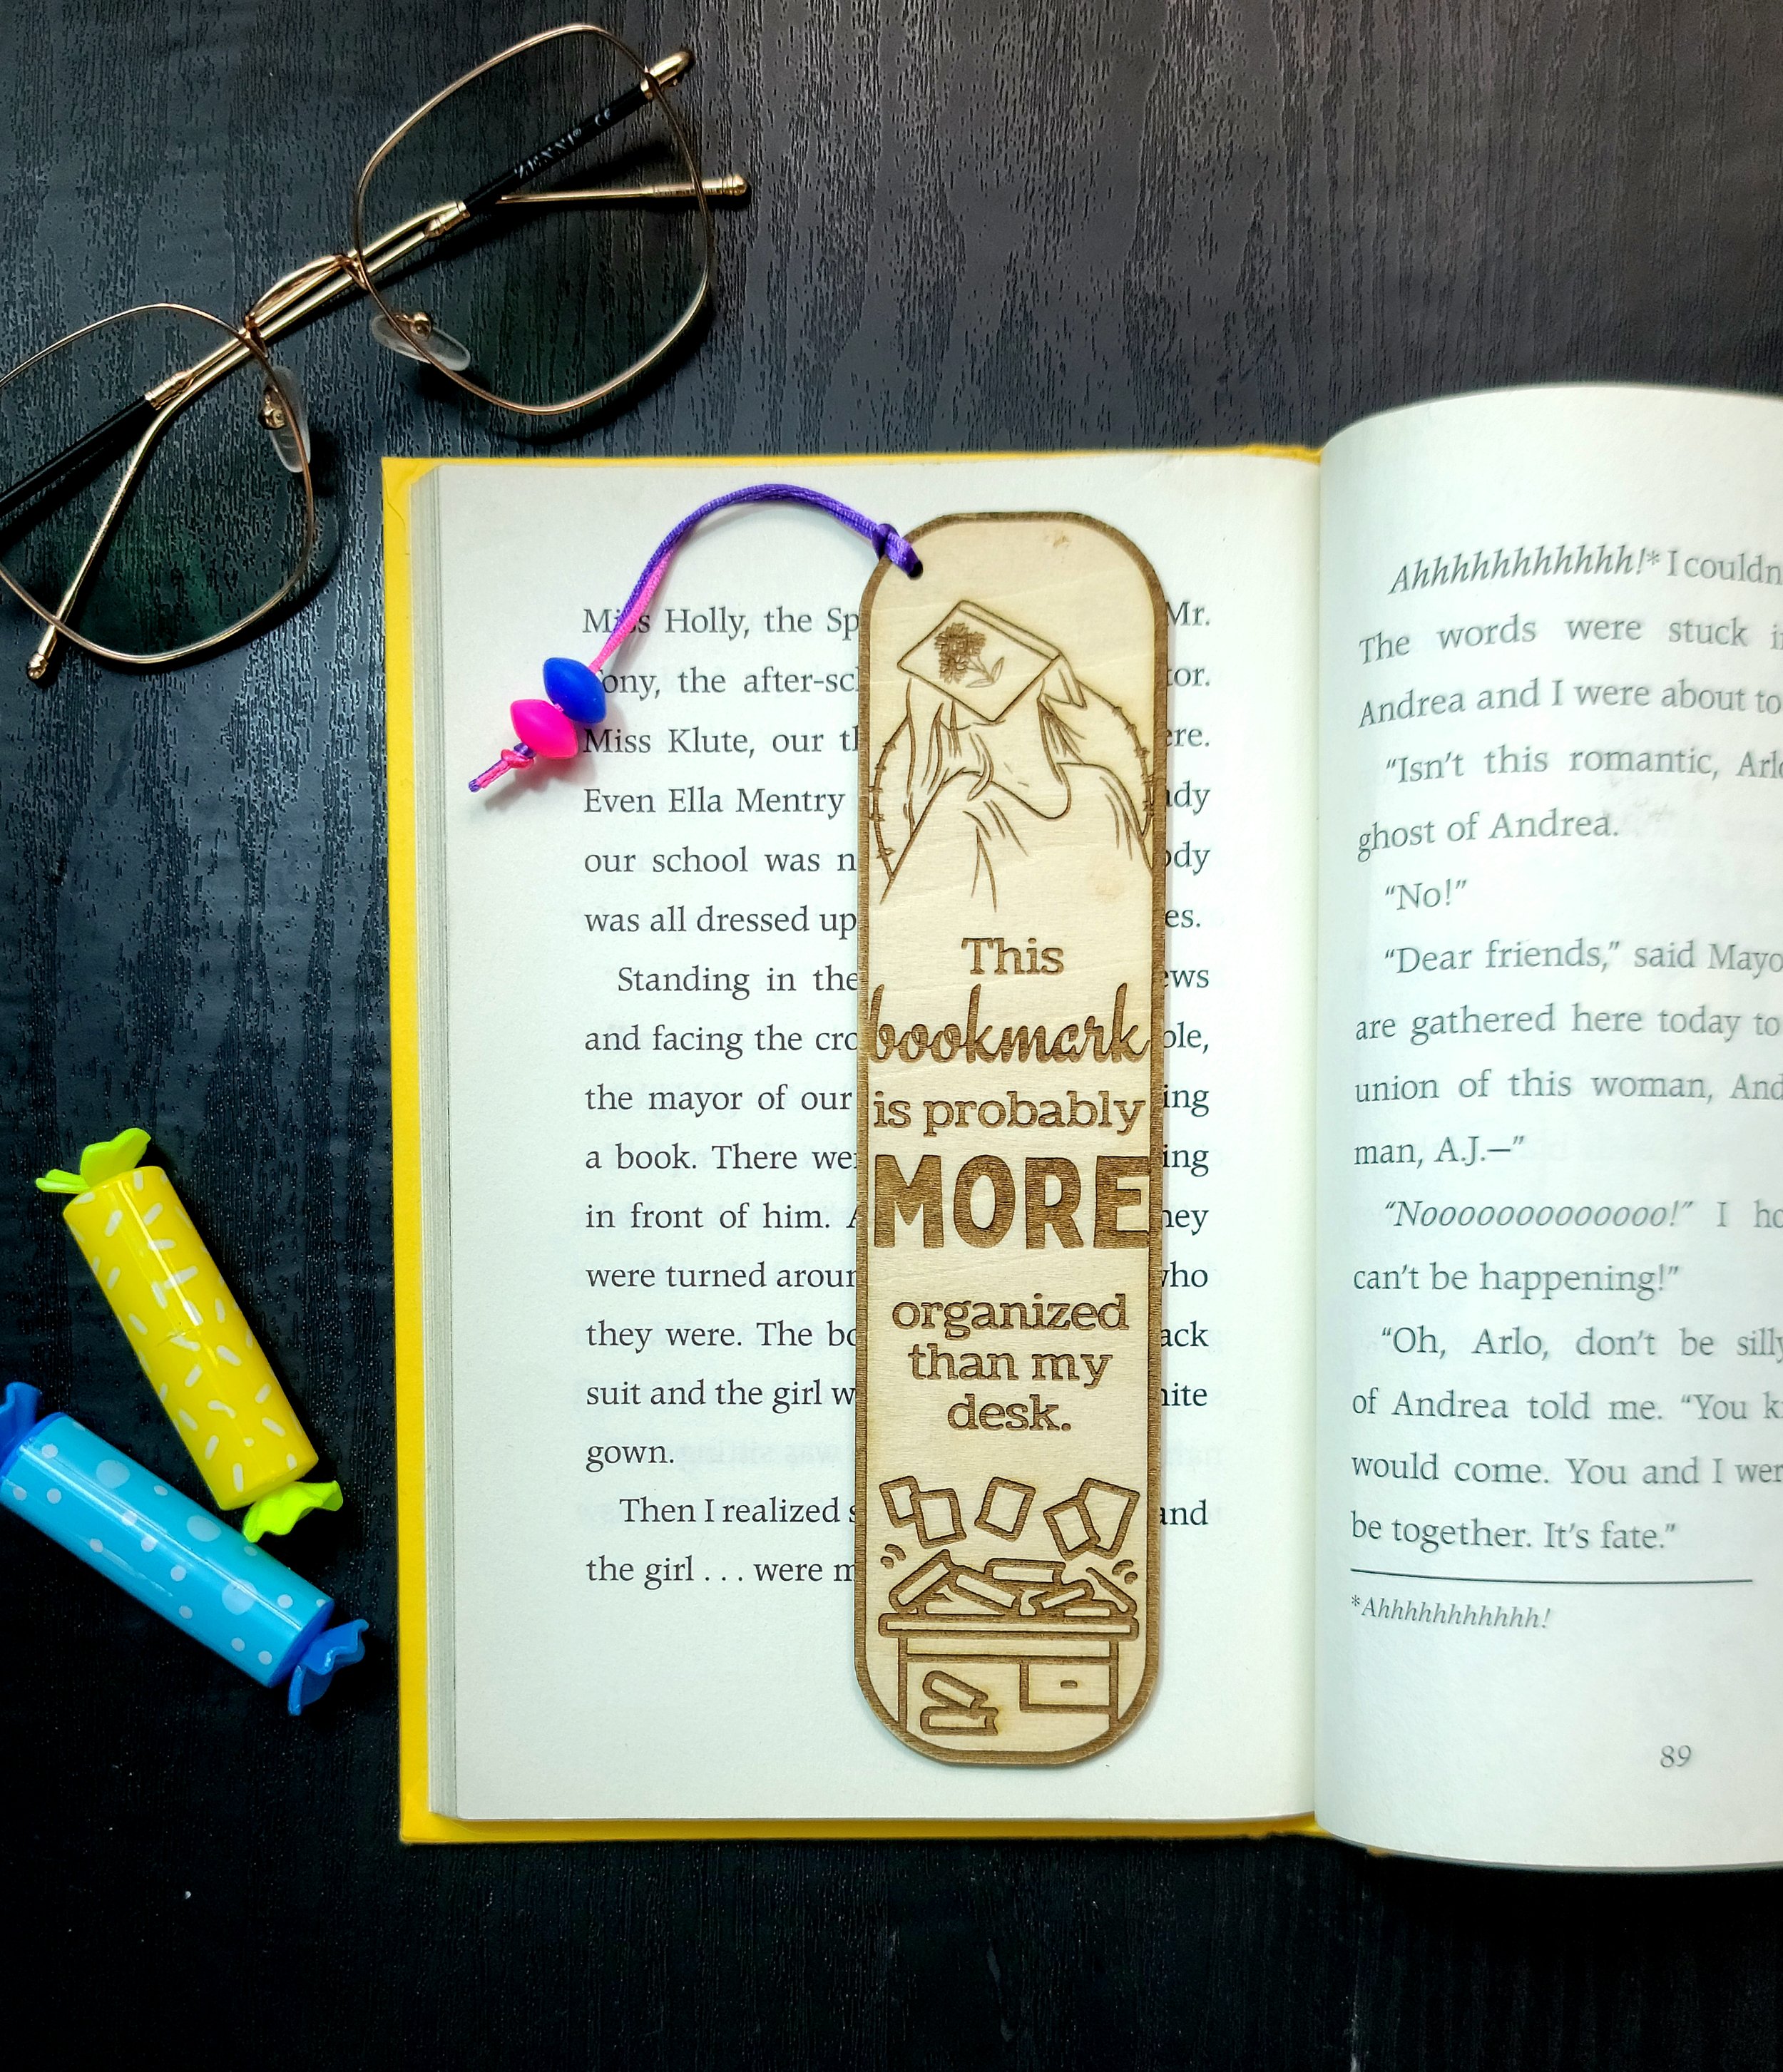 ZENNI® CE
Miss Holly, the Sp
Mr.
Tony, the after-sch
tor.
Miss Klute, our th
ere.
Even Ella Mentry
ady
our school was n
ody
was all dressed up
es.
Standing in the
ews
and facing the cro
ole,
the mayor of our
ing
a book. There wer
ing
in front of him. A
hey
were turned aroun
who
they were. The bo
ack
suit and the girl w
hite
gown.
Then I realized s
and
the girl . . . were m
This
bookmark
is probably
MORE
organized
than my
desk.
Ahhhhhhhhhhh!* I couldn
The words were stuck i
Andrea and I were about to
“Isn’t this romantic, Arl
ghost of Andrea.
“No!”
“Dear friends,” said Mayo
are gathered here today to
union of this woman, And
man, A.J.—”
“Nooooooooooooo!” I ho
can’t be happening!”
“Oh, Arlo, don’t be silly
of Andrea told me. “You k
would come. You and I wer
be together. It’s fate.”
*Ahhhhhhhhhhh!
89